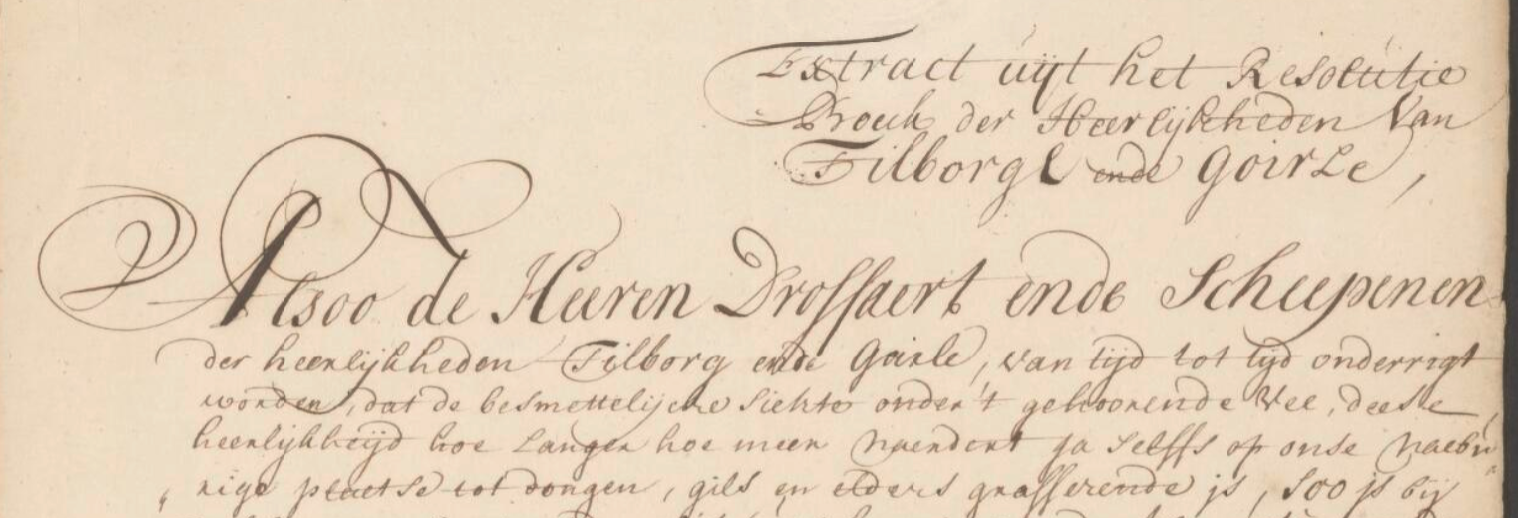 Extract uijt het Resolutie
Brouk der Heerlijkheden van
Tilborgh ende Goirle,
Alsoo de Heeren Drossaert ende Scheepenen
der heerlijkheden Tilborg ende Goirle, van tijd tot tijd onderrigt
worden, dat de besmettelijcke siekte onder't gehoorende Vee, deese
heerlijkheijd hoe langer hoe meer naendert ja selffs op onse naebu
rige plaetse tot dongen, gils en elders grasserende js, soo js bij